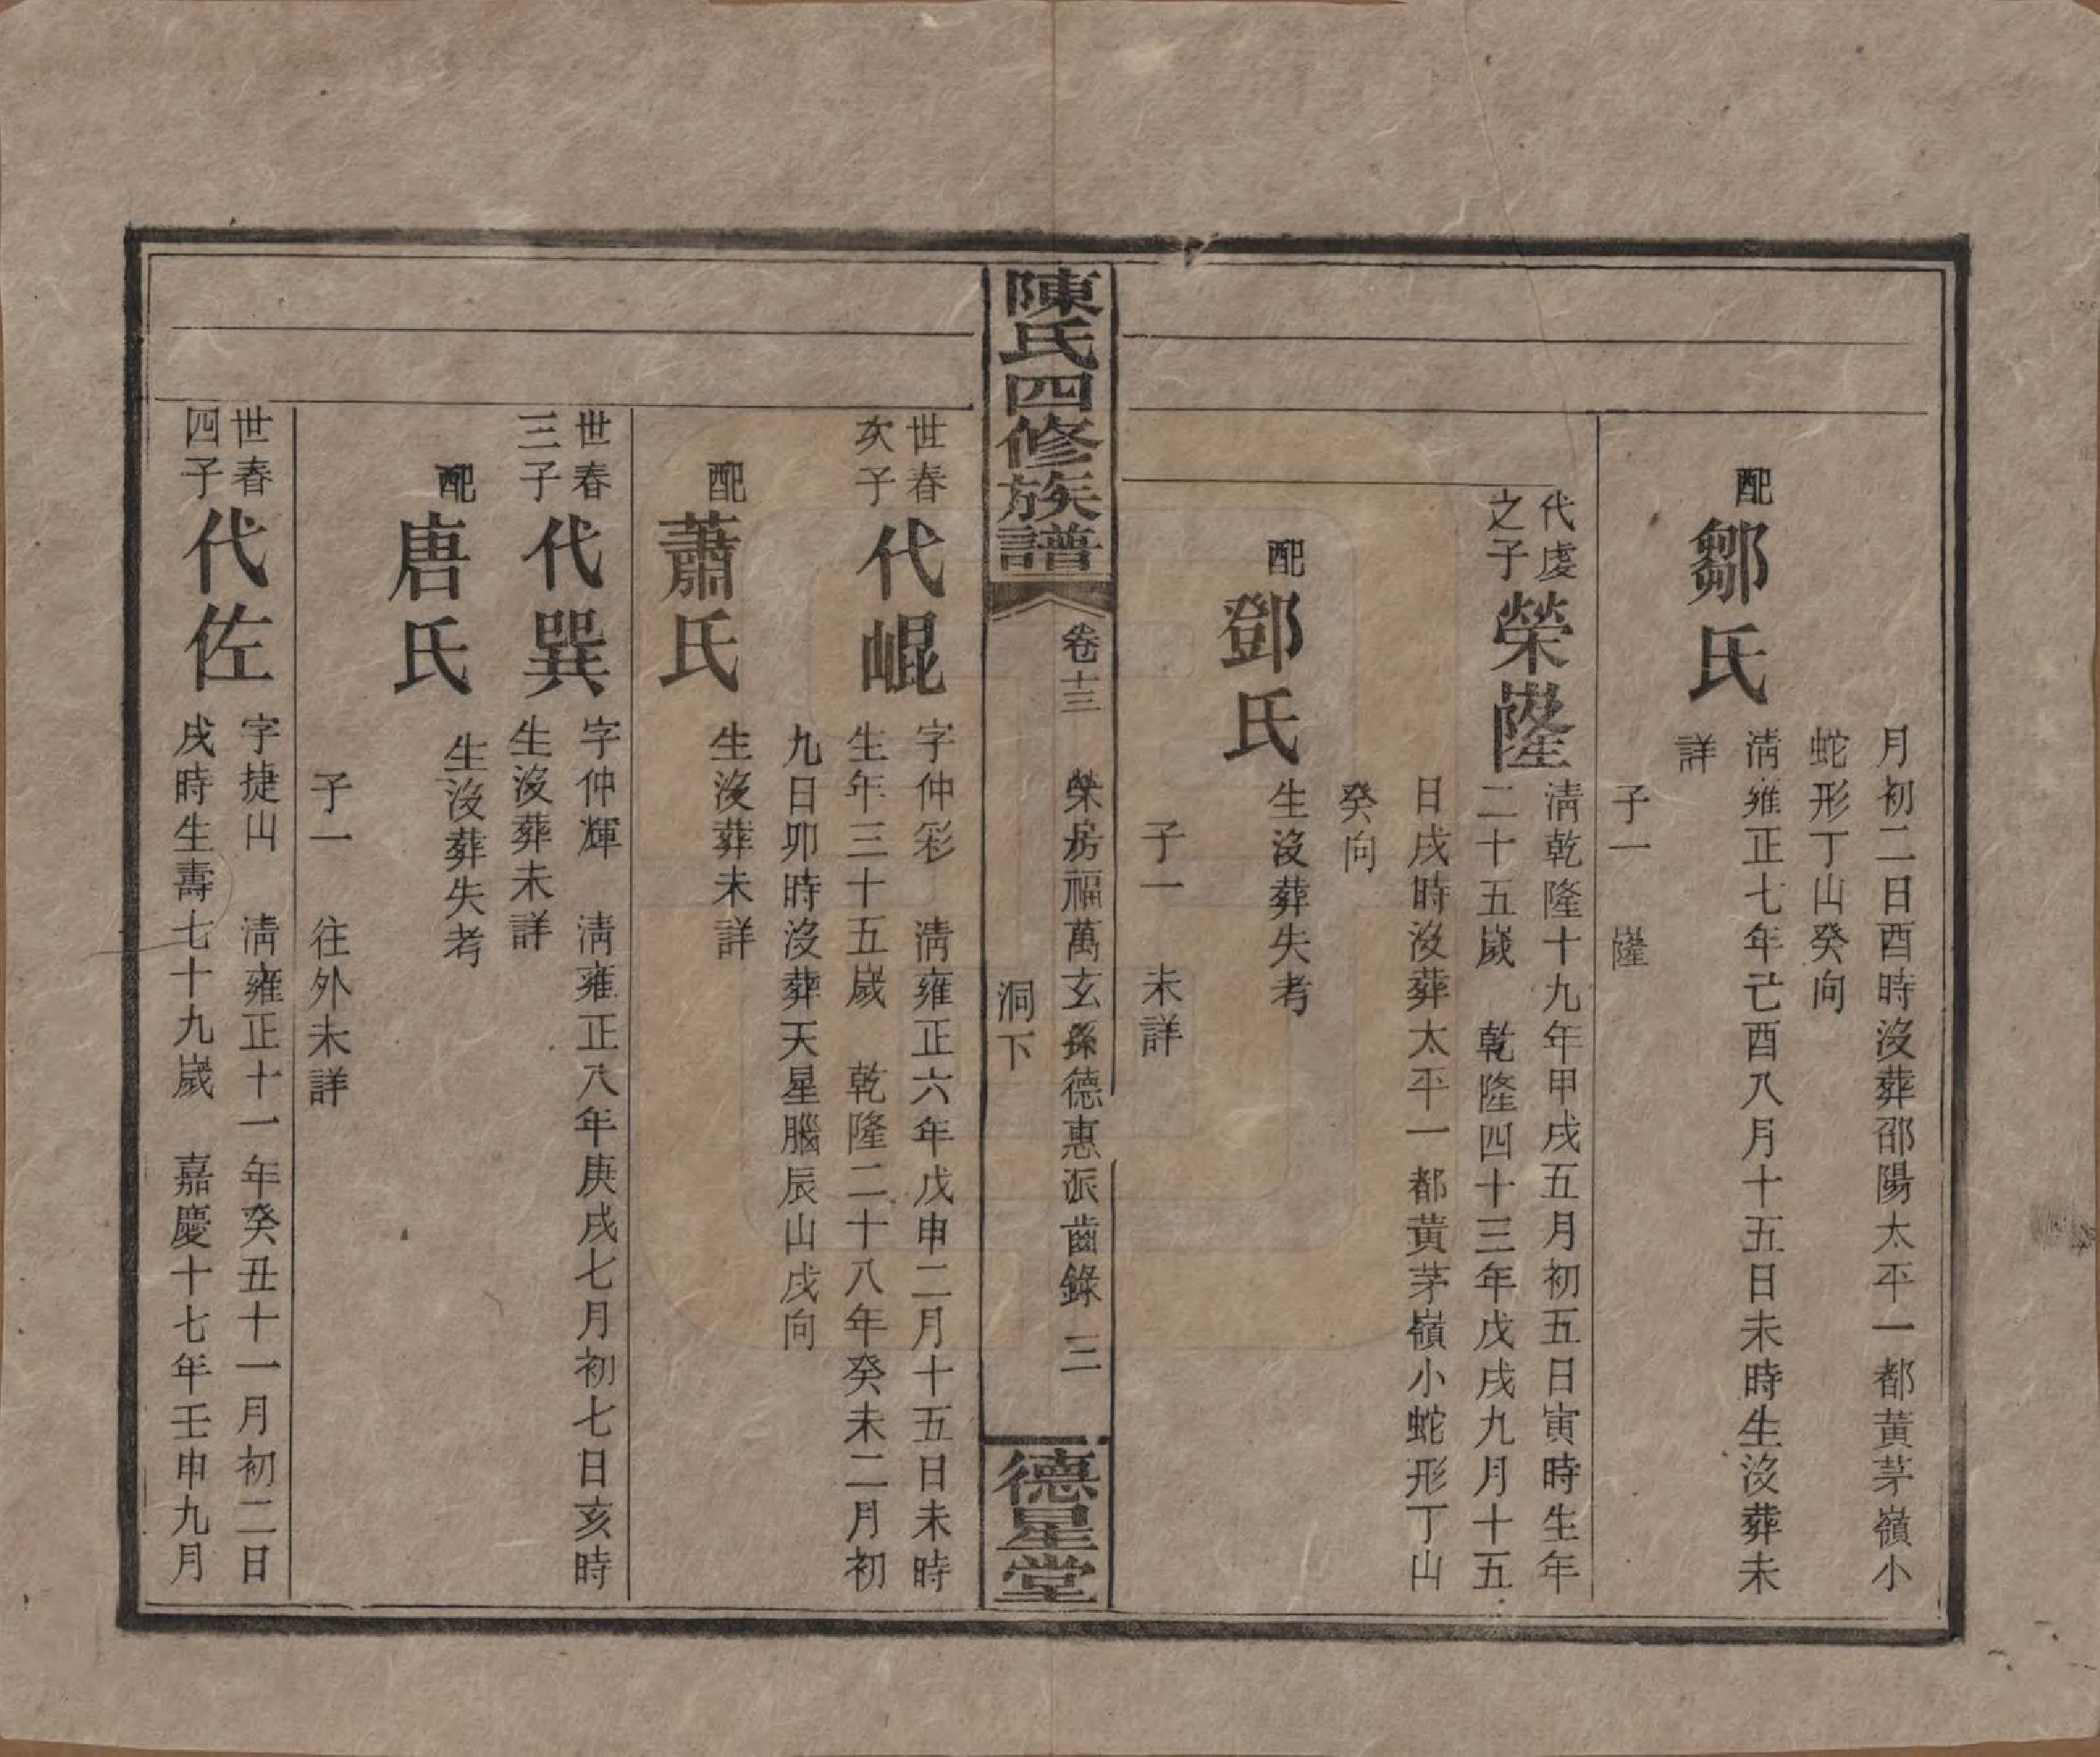 月初二日酉時沒葬邵陽太平一都黃茅嶺小
蛇形丁山癸向
配鄒氏
清雍正七年己酉八月十五日未時生沒葬未
詳
子一 㠕
代虔
之子
榮㠕
清乾隆十九年甲戌五月初五日寅時生年
二十五歲 乾隆四十三年戊戌九月十五
日戌時沒葬太平一都黃茅嶺小蛇形丁山
癸向
配鄧氏
生沒葬失考
子一 未詳
陳氏四修族譜
卷十三 榮房福萬玄孫德惠派齒錄 三
洞下
德星堂
世春
次子
代崐
字仲彩 清雍正六年戊申二月十五日未時
生年三十五歲 乾隆二十八年癸未二月初
九日卯時沒葬天星腦辰山戌向
配蕭氏
生沒葬未詳
世春
三子
代巽
字仲輝 清雍正八年庚戌七月初七日亥時
生沒葬未詳
配唐氏
生沒葬失考
子一 往外未詳
世春
四子
代佐
字捷山 清雍正十一年癸丑十一月初二日
戌時生壽七十九歲 嘉慶十七年壬申九月